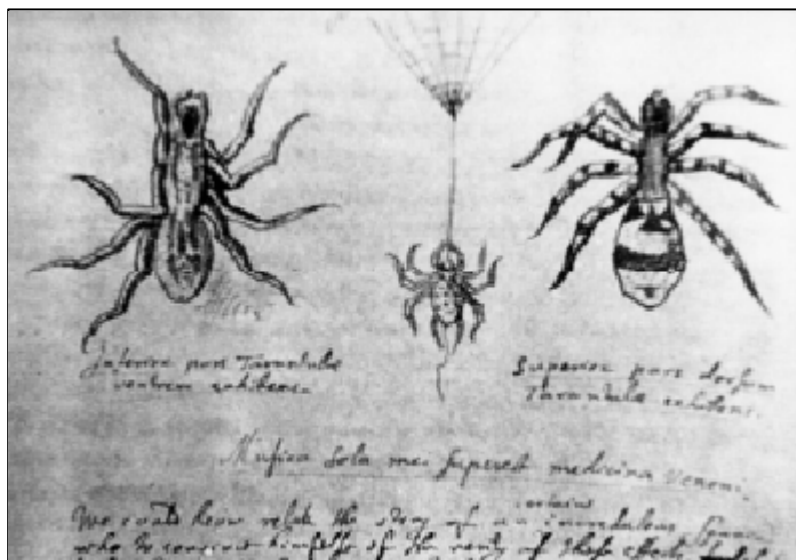 Inferior pars Tarantulæ
ventrem exhibens
Superior pars dorsum
Tarantulæ exhibens.
Musica sola mei superest medicina veneni
certain
We could here relate the story of an incredulous
who to convince himself of the verity of these effects